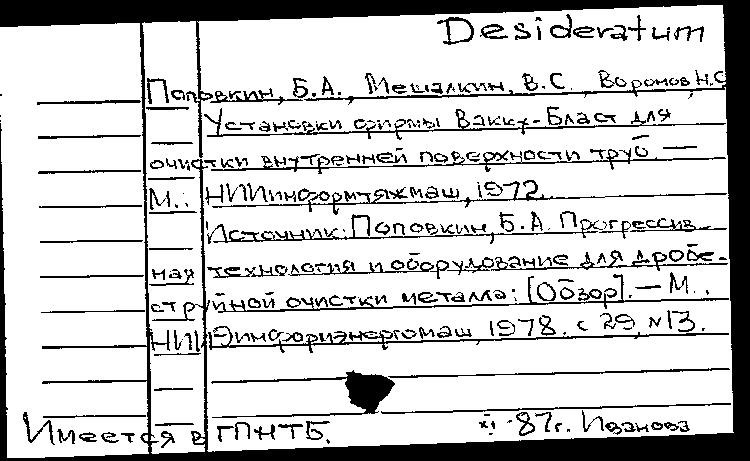 Desideratum
Поповкин, Б.А., Мешалкин, В.С., Воронов, Н.С
Установки фирмы Вакку-Бласт для
очистки внутренней поверхности труб. —
М.: НИИинформтяжмаш, 1972.
Источник: Поповкин, Б.А. Прогрессив-
ная технология и оборудование для дробе-
струйной очистки металла: [Обзор]. — М.:
НИИЭинформэнергомаш, 1978. с 29, №13.
Имеется в ГПНТБ. XI-87г. Иванова